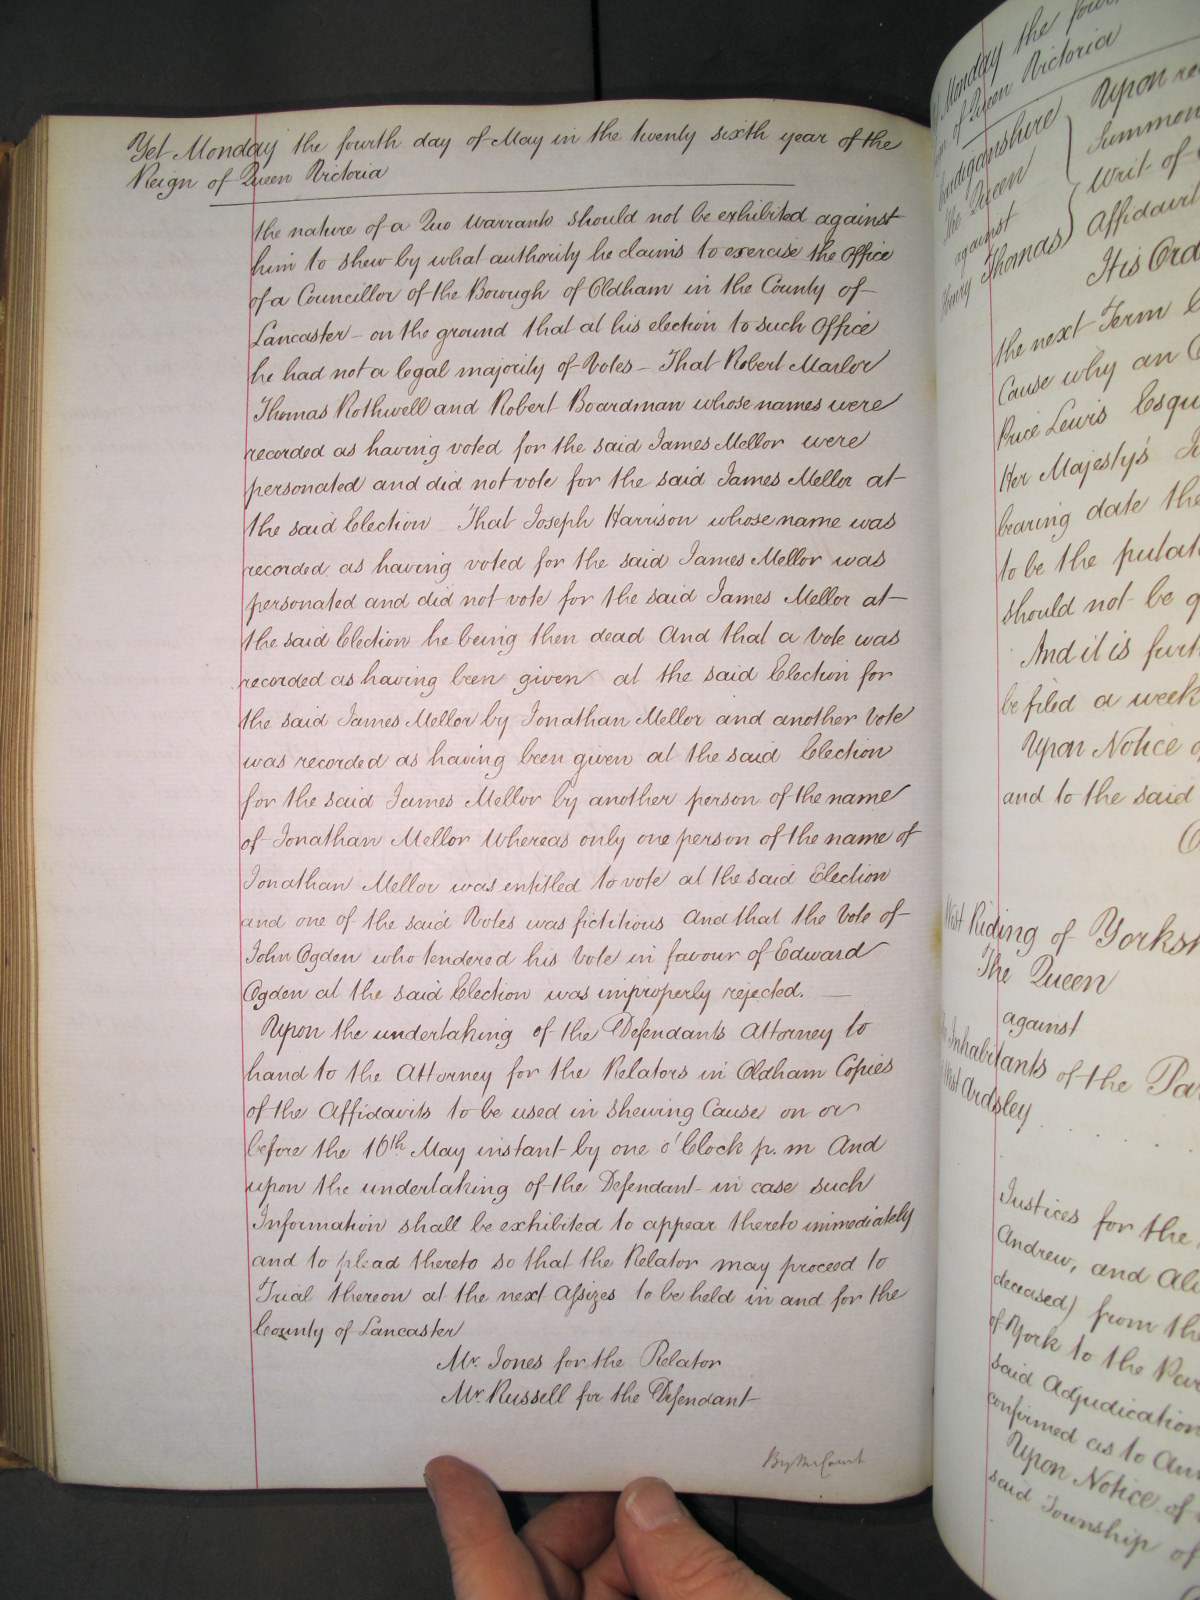 Yet Monday the fourth day of May in the twenty sixth year of the
Reign of Queen Victoria
the nature of a Quo Warranto should not be exhibited against
him to shew by what authority he claims to exercise the Office
of a Councillor of the Borough of Oldham in the County of
Lancaster - on the ground that at his election to such Office
he had not a legal majority of Votes - That Robert Marlor
Thomas Rothwell and Robert Boardman whose names were
recorded as having voted for the said James Mellor were
personated and did not vote for the said James Mellor at
the said Election That Joseph Harrison whose name was
recorded as having voted for the said James Mellor was
personated and did not vote for the said James Mellor at
the said Election he being then dead And that a Vote was
recorded as having been given at the said Election for
the said James Mellor by Jonathan Mellor and another Vote
was recorded as having been given at the said Election
for the said James Mellor by another person of the name
of Jonathan Mellor Whereas only one person of the name of
Jonathan Mellor was entitled to vote at the said Election
and one of the said Votes was fictitious And that the Vote of
John Ogden who tendered his Vote in favour of Edward
Ogden at the said Election was improperly rejected.
Upon the undertaking of the Defendants Attorney to
hand to the Attorney for the Relators in Oldham Copies
of the Affidavits to be used in shewing Cause on or
before the 16th May instant by one o'Clock p.m And
upon the undertaking of the Defendant in case such
Information shall be exhibited to appear thereto immediately
and to plead thereto so that the Relator may proceed to
Trial thereon at the next Assizes to be held in and for the
County of Lancaster
Mr. Jones for the Relator
Mr Russell for the Defendant
By the Court
Monday the
of Queen Victoria
The Queen
against
Henry Thomas
Upon
Summon
Writ of
Affidavit
It is Ord
the next Term
Cause why an
Price Lewis Esqu
Her Majesty's
bearing date the
to be the putat
should not be q
And it is furt
be filed a week
Upon Notice
and to the said
West Riding of Yorksh
The Queen
against
Inhabitants of the Par
West Ardsley
Justices for the
Andrew, and
deceased) from the
of York to the Par
said Adjudication
confirmed as to
Upon Notice of
said Township of